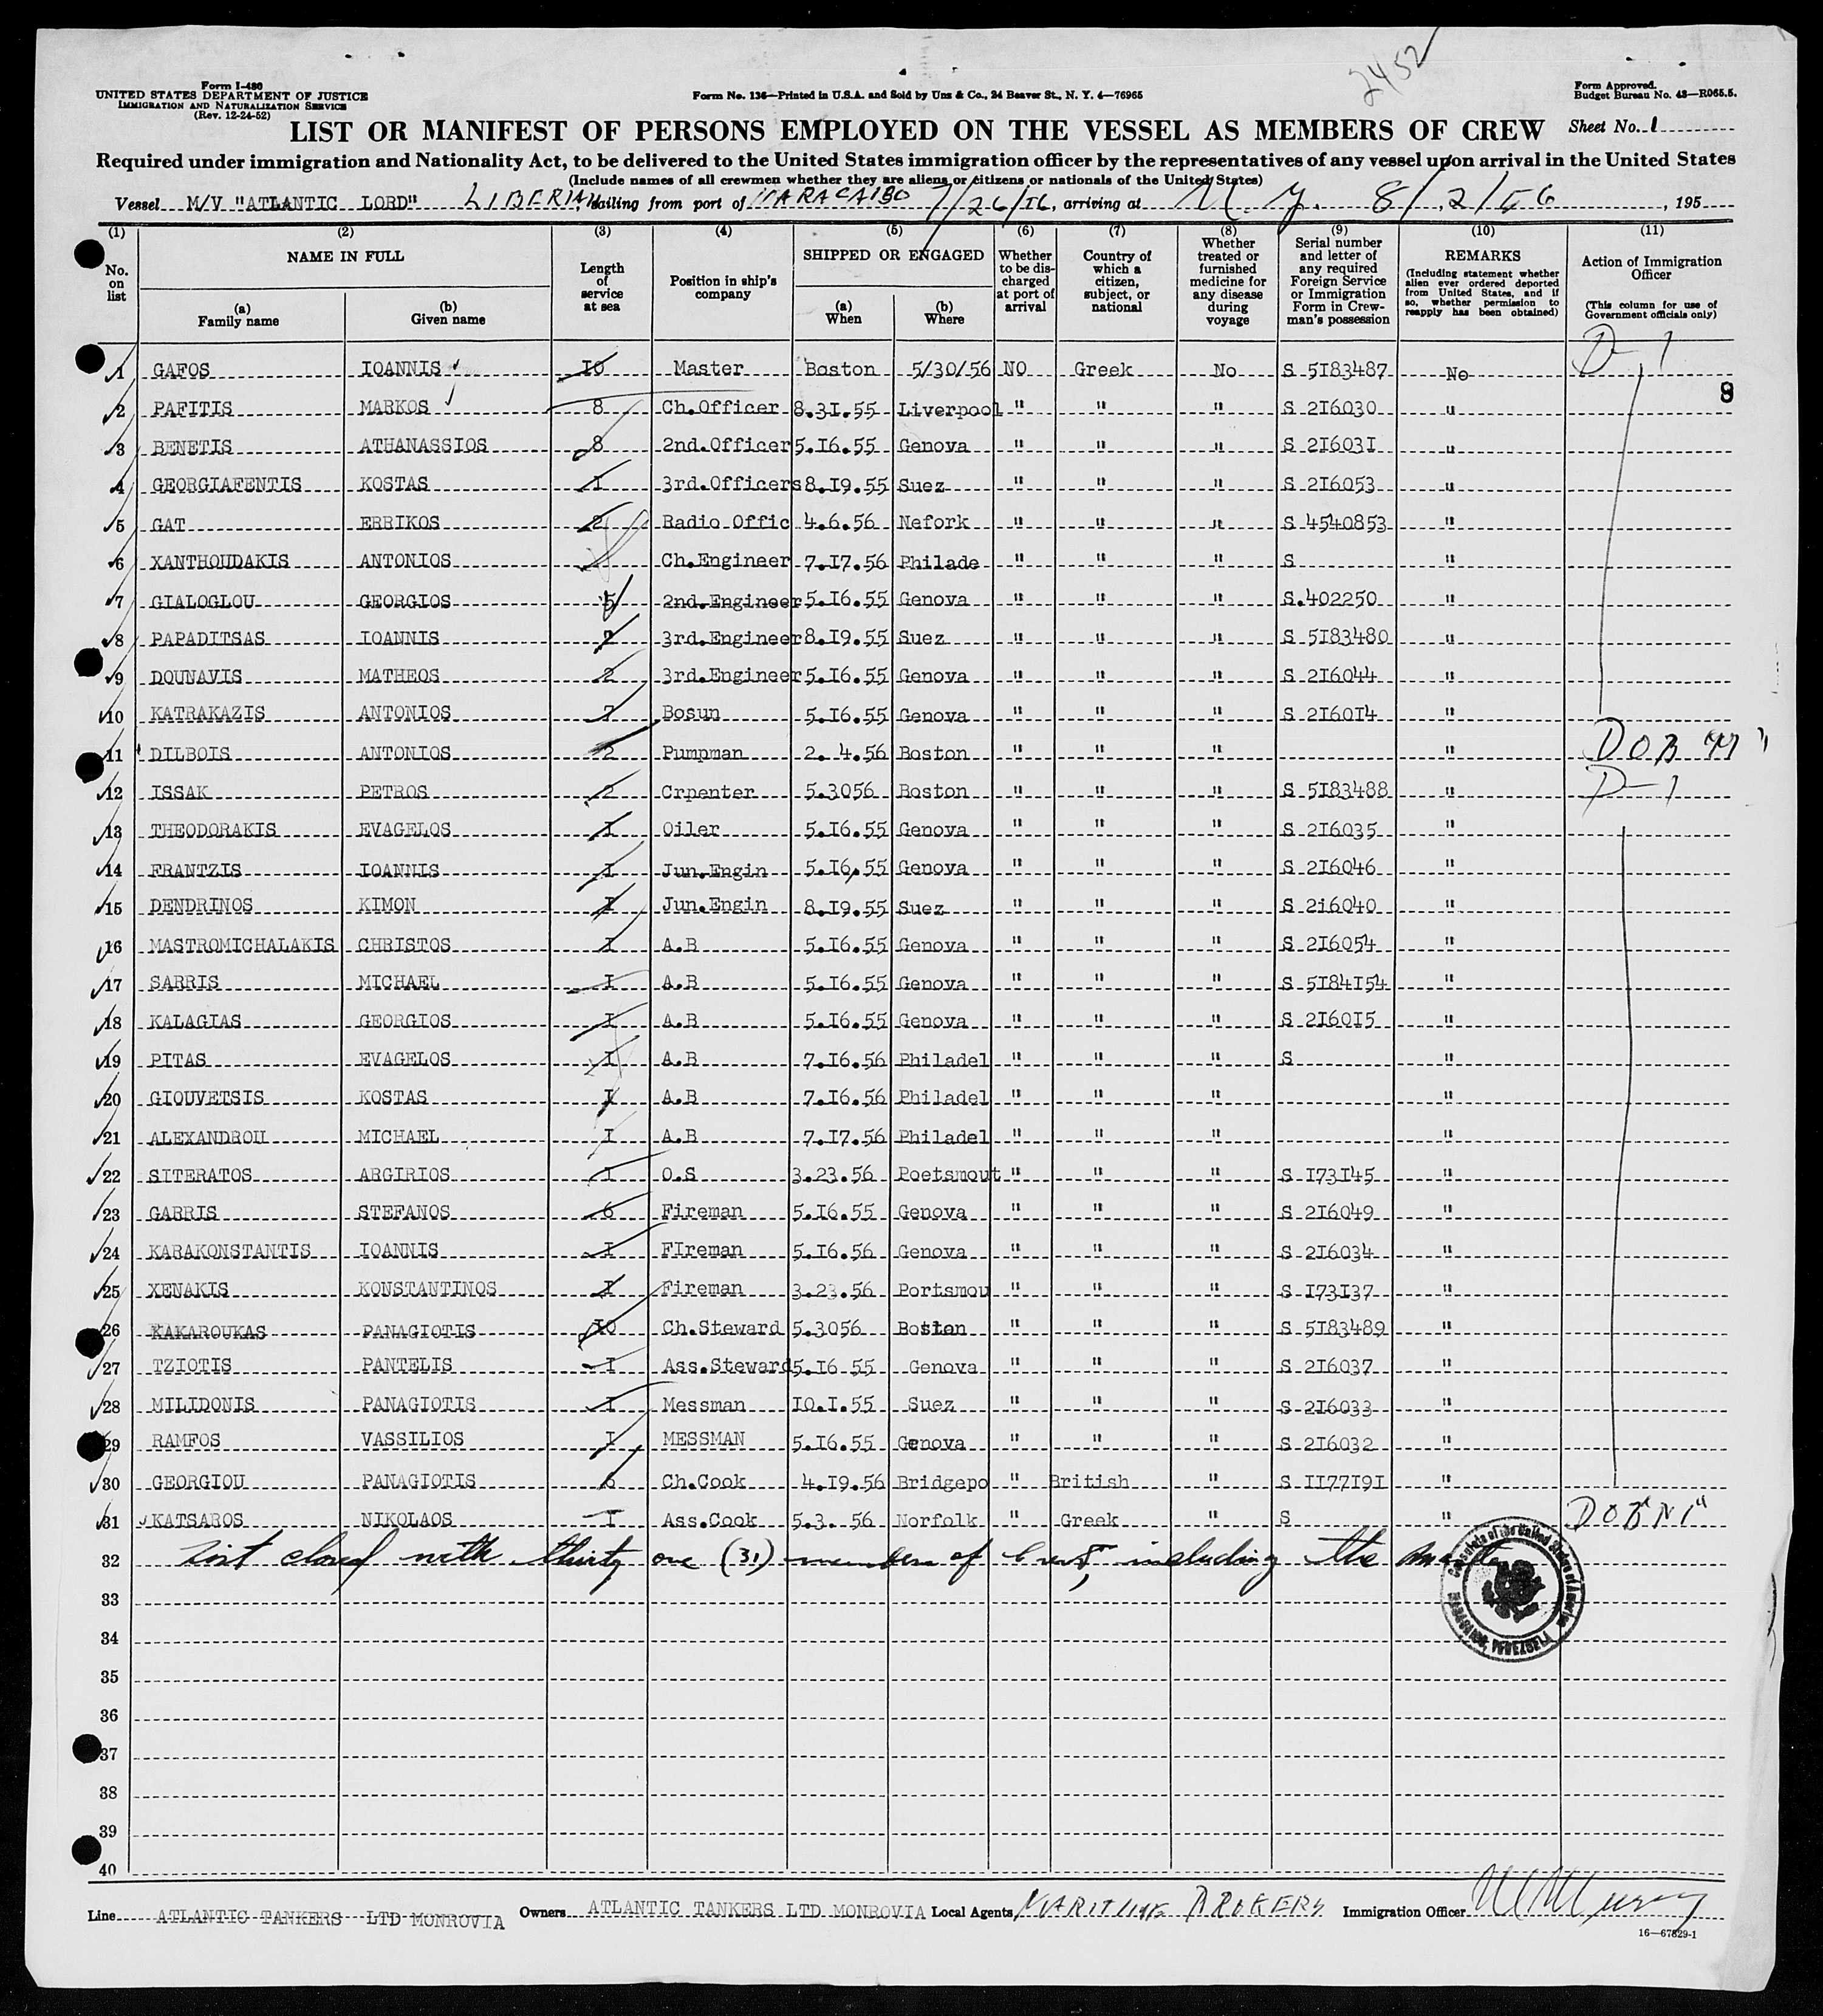 2452
Form I-480
UNITED STATES DEPARTMENT OF JUSTICE
IMMIGRATION AND NATURALIZATION SERVICE
(Rev. 12-24-52)
Form No. 136—Printed in U.S.A. and Sold by Unz & Co., 24 Beaver St., N. Y. 4—76965
Form Approved.
Budget Bureau No. 43—R065.5.
LIST OR MANIFEST OF PERSONS EMPLOYED ON THE VESSEL AS MEMBERS OF CREW Sheet No. 1
Required under immigration and Nationality Act, to be delivered to the United States immigration officer by the representatives of any vessel upon arrival in the United States
(Include names of all crewmen whether they are aliens or citizens or nationals of the United States)
Vessel M/V "ATLANTIC LORD" LIBERIAN, sailing from port of MARACAIBO 7/26/56, arriving at N.Y. 8/2/56, 195
(1) (2) (3) (4) (5) (6) (7) (8) (9) (10) (11)
No. on list
NAME IN FULL
(a) Family name
(b) Given name
Length of service at sea
Position in ship's company
SHIPPED OR ENGAGED
(a) When
(b) Where
Whether to be discharged at port of arrival
Country of which a citizen, subject, or national
Whether treated or furnished medicine for any disease during voyage
Serial number and letter of any required Foreign Service or Immigration Form in Crewman's possession
REMARKS
(Including statement whether alien ever ordered deported from United States, and if so, whether permission to reapply has been obtained)
Action of Immigration Officer
(This column for use of Government officials only)
1 GAFOS IOANNIS I0 Master Boston 5/30/56 NO Greek No S 5I83487 No D-1
8
2 PAFITIS MARKOS 8 Ch.Officer 8.3I.55 Liverpool " " " S 2I6030 "
3 BENETIS ATHANASSIOS 8 2nd.Officer 5.I6.55 Genova " " " S 2I603I "
4 GEORGIAFENTIS KOSTAS I 3rd.Officers 8.I9.55 Suez " " " S 2I6053 "
5 GAT ERRIKOS 2 Radio Offic 4.6.56 Nefork " " " S 4540853 "
6 XANTHOUDAKIS ANTONIOS Ch.Engineer 7.I7.56 Philade " " " S "
7 GIALOGLOU GEORGIOS 5 2nd.Engineer 5.I6.55 Genova " " " S.402250 "
8 PAPADITSAS IOANNIS 7 3rd.Engineer 8.I9.55 Suez " " " S 5I83480 "
9 DOUNAVIS MATHEOS 2 3rd.Engineer 5.I6.55 Genova " " " S 2I6044 "
10 KATRAKAZIS ANTONIOS 7 Bosun 5.I6.55 Genova " " " S 2I60I4 "
11 DILBOIS ANTONIOS 2 Pumpman 2. 4.56 Boston " " " " DOB "M"
12 ISSAK PETROS 2 Crpenter 5.3056 Boston " " " S 5I83488 " D-1
13 THEODORAKIS EVAGELOS I Oiler 5.I6.55 Genova " " " S 2I6035 "
14 FRANTZIS IOANNIS I Jun.Engin 5.I6,55 Genova " " " S 2I6046 "
15 DENDRINOS KIMON I Jun.Engin 8.I9.55 Suez " " " S 2i6040 "
16 MASTROMICHALAKIS CHRISTOS I A.B 5.I6.55 Genova " " " S 2I6054 "
17 SARRIS MICHAEL I A.B 5.I6.55 Genova " " " S 5I84I54 "
18 KALAGIAS GEORGIOS I A.B 5.I6.55 Genova " " " S 2I60I5 "
19 PITAS EVAGELOS I A.B 7.I6.56 Philadel " " " S "
20 GIOUVETSIS KOSTAS I A.B 7.I6.56 Philadel " " " "
21 ALEXANDROU MICHAEL I A.B 7.I7.56 Philadel " " " "
22 SITERATOS ARGIRIOS I O.S 3.23.56 Poetsmout " " " S I73I45 "
23 GARRIS STEFANOS 6 Fireman 5.I6.55 Genova " " " S 2I6049 "
24 KARAKONSTANTIS IOANNIS I FIreman 5.I6.56 Genova " " " S 2I6034 "
25 XENAKIS KONSTANTINOS I Fireman 3.23.56 Portsmou " " " S I73I37 "
26 KAKAROUKAS PANAGIOTIS I0 Ch.Steward 5.3056 Boston " " " S 5I83489 "
27 TZIOTIS PANTELIS I Ass.Steward 5.I6 55 Genova " " " S 2I6037 "
28 MILIDONIS PANAGIOTIS I Messman I0.I.55 Suez " " " S 2I6033 "
29 RAMFOS VASSILIOS I MESSMAN 5.I6.55 Genova " " " S 2I6032 "
30 GEORGIOU PANAGIOTIS 6 Ch.Cook 4.I9.56 Bridgepo " British " S II77I9I "
31 KATSAROS NIKOLAOS I Ass.Cook 5.3. 56 Norfolk " Greek " S " DOB "N1"
32 List closed with thirty one (31) members of Crew, including the
33
34
35
36
37
38
39
40
Line ATLANTIC TANKERS LTD MONROVIA Owners ATLANTIC TANKERS LTD MONROVIA Local Agents MARITIME BROKERS Immigration Officer
16—67829-1